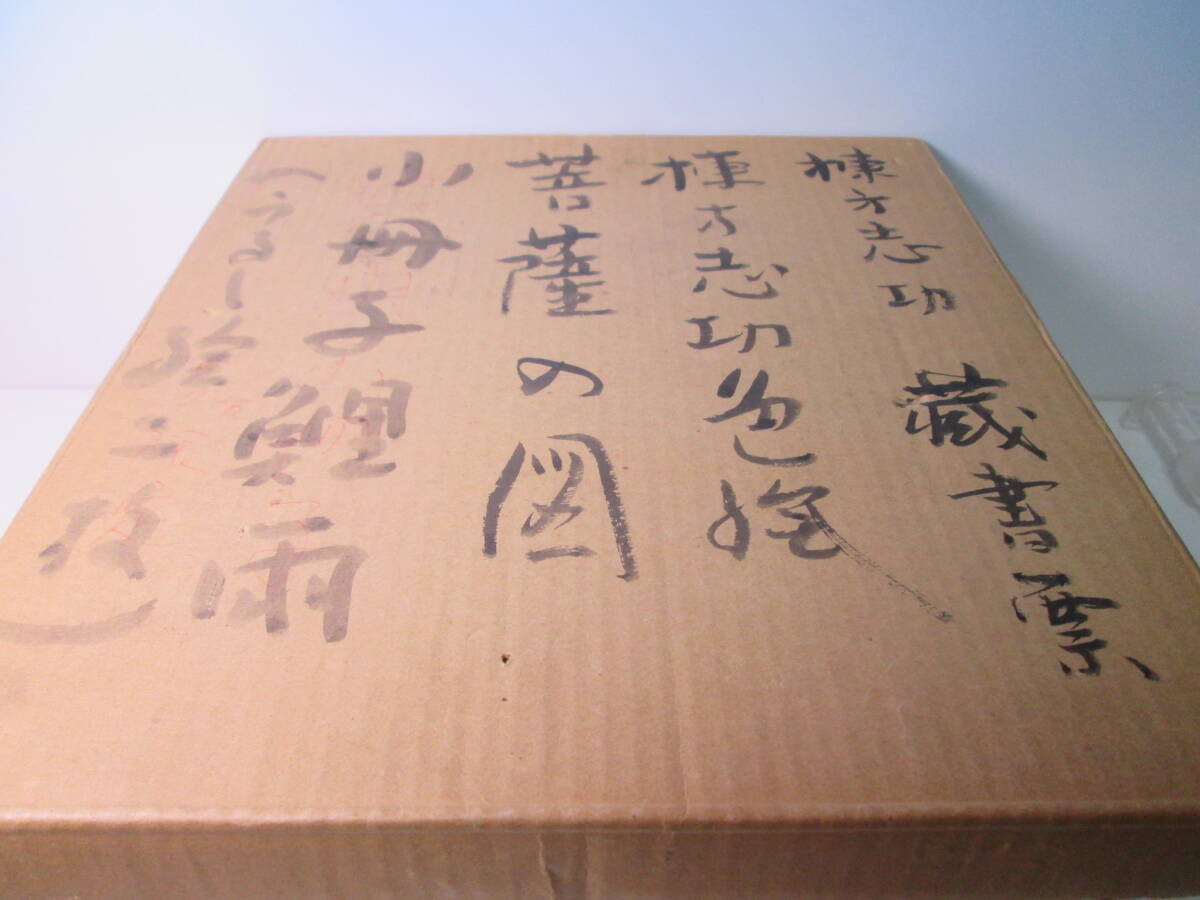 棟方志功 蔵書票
棟方志功色絵
菩薩の図
小冊子 鯉雨
(うるし絵二枚)